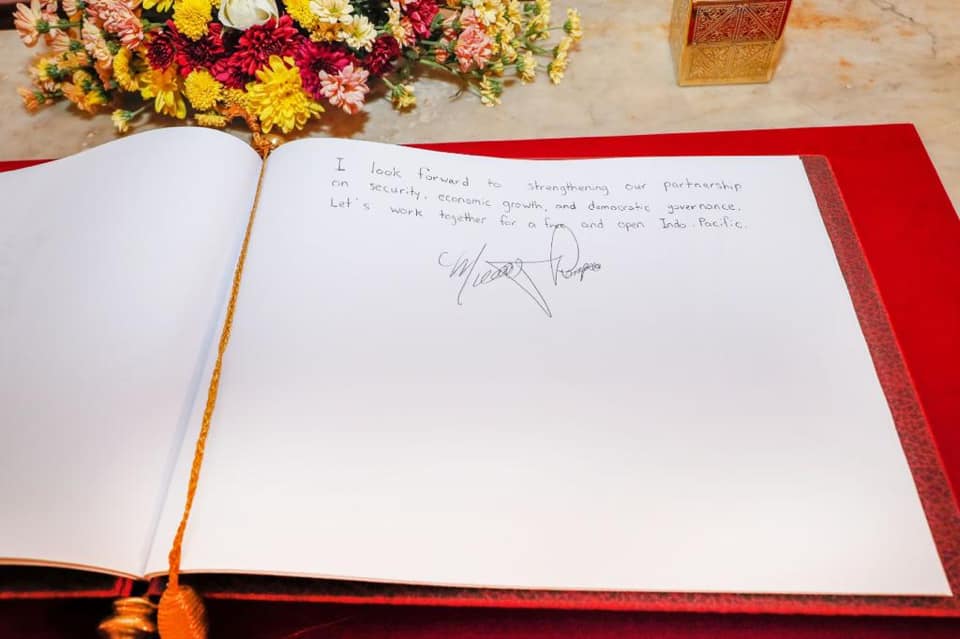 I look forward to strengthening our partnership
on security, economic growth, and democratic governance.
Let's work together for a free and open Indo-Pacific.